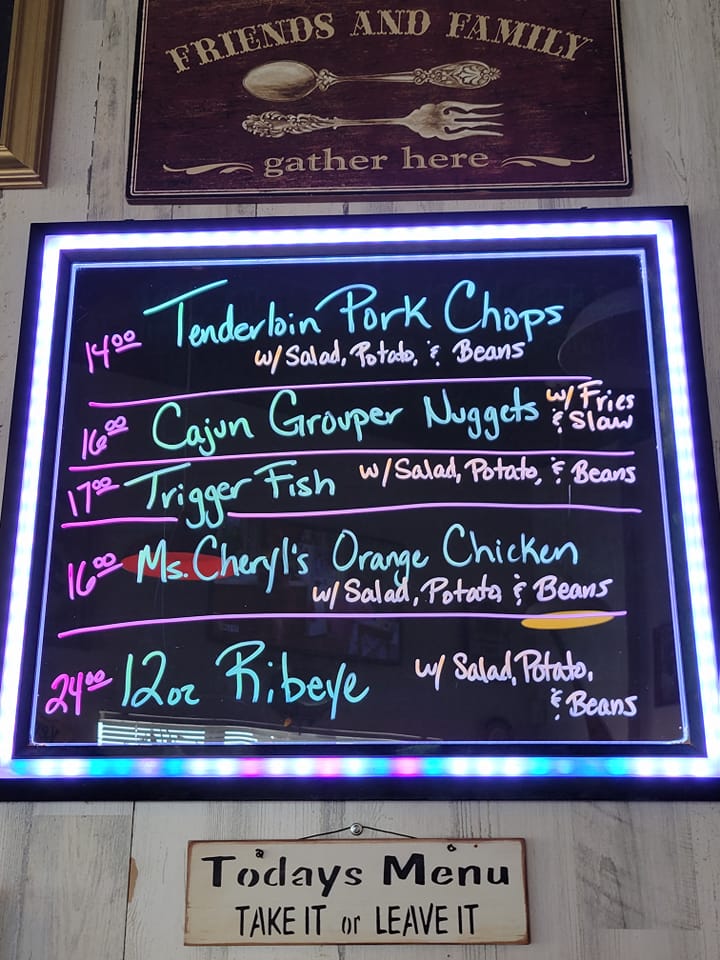 FRIENDS AND FAMILY
gather here
14⁰⁰ Tenderloin Pork Chops
w/ Salad, Potato, & Beans
16⁰⁰ Cajun Grouper Nuggets w/ Fries
& Slaw
17⁰⁰ Trigger Fish w/ Salad, Potato, & Beans
16⁰⁰ Ms. Cheryl's Orange Chicken
w/ Salad, Potato & Beans
24⁰⁰ 12oz Ribeye w/ Salad, Potato,
& Beans
Todays Menu
TAKE IT or LEAVE IT